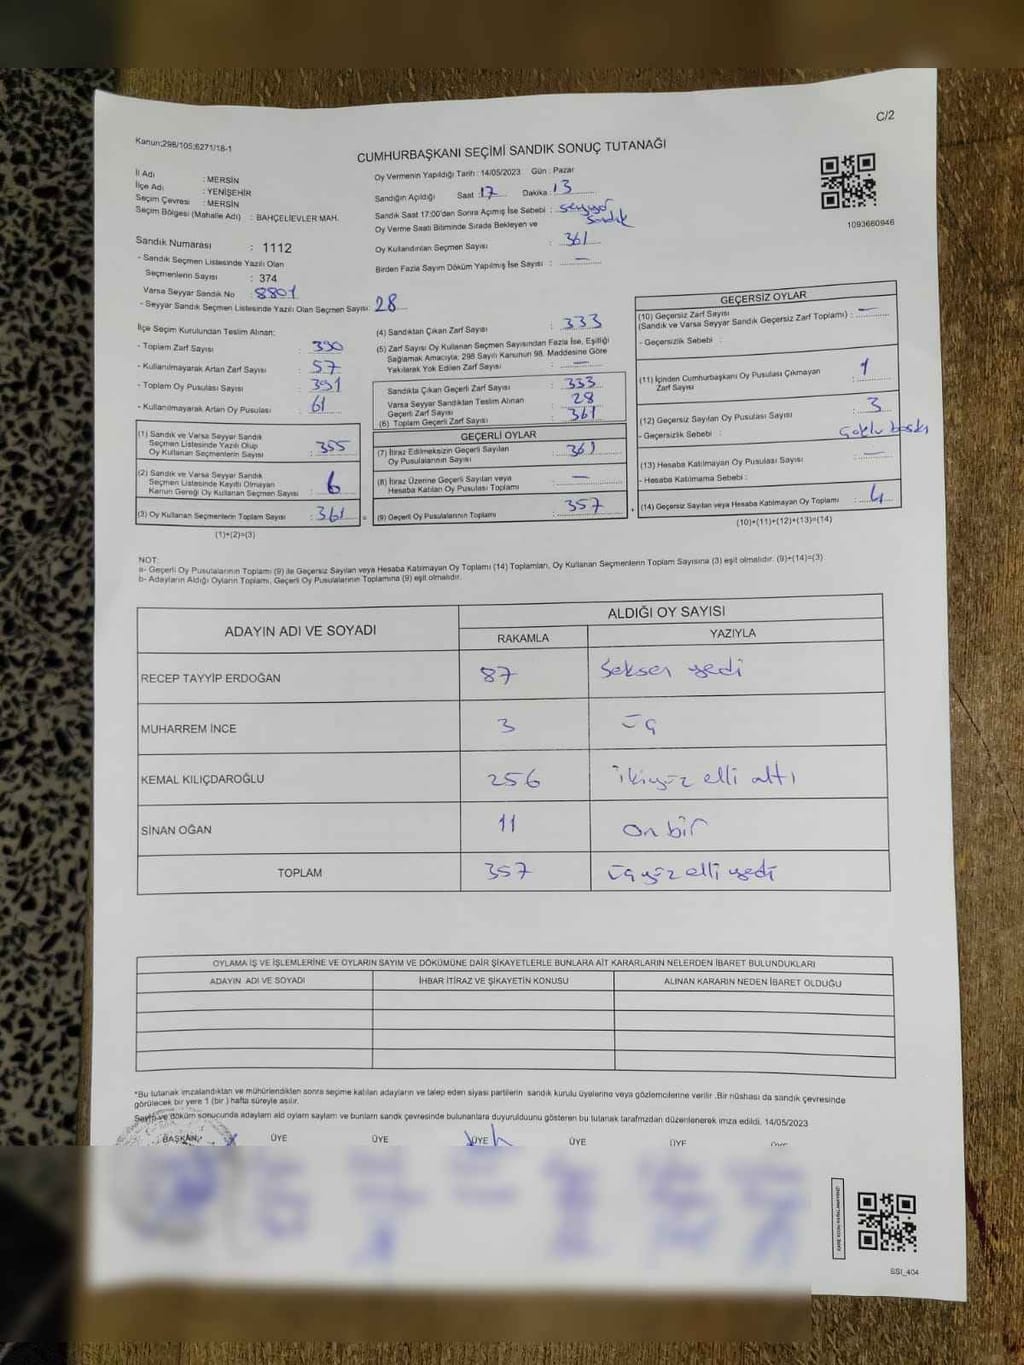 C/2
Kanun:298/105;6271/18-1
CUMHURBAŞKANI SEÇİMİ SANDIK SONUÇ TUTANAĞI
İl Adı : MERSİN
İlçe Adı : YENİŞEHİR
Seçim Çevresi : MERSİN
Seçim Bölgesi (Mahalle Adı) : BAHÇELİEVLER MAH.
Sandık Numarası : 1112
- Sandık Seçmen Listesinde Yazılı Olan
Seçmenlerin Sayısı : 374
Varsa Seyyar Sandık No : 8801
- Seyyar Sandık Seçmen Listesinde Yazılı Olan Seçmen Sayısı: 28
Oy Vermenin Yapıldığı Tarih : 14/05/2023 Gün : Pazar
Sandığın Açıldığı Saat : 17 Dakika : 13
Sandık Saat 17:00'den Sonra Açımış İse Sebebi : seyyar sandık
Oy Verme Saati Bitiminde Sırada Bekleyen ve
Oy Kullandırılan Seçmen Sayısı : 361
Birden Fazla Sayım Döküm Yapılmış İse Sayısı : —
1093660946
İlçe Seçim Kurulundan Teslim Alınan:
- Toplam Zarf Sayısı : 390
- Kullanılmayarak Artan Zarf Sayısı : 57
- Toplam Oy Pusulası Sayısı : 391
- Kullanılmayarak Artan Oy Pusulası : 61
(1) Sandık ve Varsa Seyyar Sandık
Seçmen Listesinde Yazılı Olup
Oy Kullanan Seçmenlerin Sayısı : 355
(2) Sandık ve Varsa Seyyar Sandık
Seçmen Listesinde Kayıtlı Olmayan
Kanun Gereği Oy Kullanan Seçmen Sayısı : 6
(3) Oy Kullanan Seçmenlerin Toplam Sayısı : 361
(1)+(2)=(3)
(4) Sandıktan Çıkan Zarf Sayısı : 333
(5) Zarf Sayısı Oy Kullanan Seçmen Sayısından Fazla İse, Eşitliği
Sağlamak Amacıyla; 298 Sayılı Kanunun 98. Maddesine Göre
Yakılarak Yok Edilen Zarf Sayısı : —
Sandıkta Çıkan Geçerli Zarf Sayısı : 333
Varsa Seyyar Sandıktan Teslim Alınan
Geçerli Zarf Sayısı : 28
(6) Toplam Geçerli Zarf Sayısı : 361
GEÇERLİ OYLAR
(7) İtiraz Edilmeksizin Geçerli Sayılan
Oy Pusulalarının Sayısı : 361
(8) İtiraz Üzerine Geçerli Sayılan veya
Hesaba Katılan Oy Pusulası Toplamı : —
(9) Geçerli Oy Pusulalarının Toplamı : 357
GEÇERSİZ OYLAR
(10) Geçersiz Zarf Sayısı
(Sandık ve Varsa Seyyar Sandık Geçersiz Zarf Toplamı) : —
- Geçersizlik Sebebi :
(11) İçinden Cumhurbaşkanı Oy Pusulası Çıkmayan
Zarf Sayısı : 1
(12) Geçersiz Sayılan Oy Pusulası Sayısı : 3
- Geçersizlik Sebebi : Çoklu baskı
(13) Hesaba Katılmayan Oy Pusulası Sayısı : —
- Hesaba Katılmama Sebebi :
(14) Geçersiz Sayılan veya Hesaba Katılmayan Oy Toplamı : 4
(10)+(11)+(12)+(13)=(14)
NOT:
a- Geçerli Oy Pusulalarının Toplamı (9) ile Geçersiz Sayılan veya Hesaba Katılmayan Oy Toplamı (14) Toplamları, Oy Kullanan Seçmenlerin Toplam Sayısına (3) eşit olmalıdır. (9)+(14)=(3)
b- Adayların Aldığı Oyların Toplamı, Geçerli Oy Pusulalarının Toplamına (9) eşit olmalıdır.
ADAYIN ADI VE SOYADI
ALDIĞI OY SAYISI
RAKAMLA YAZIYLA
RECEP TAYYİP ERDOĞAN 87 Seksen yedi
MUHARREM İNCE 3 üç
KEMAL KILIÇDAROĞLU 256 ikiyüz elli altı
SİNAN OĞAN 11 on bir
TOPLAM 357 üçyüz elli yedi
OYLAMA İŞ VE İŞLEMLERİNE VE OYLARIN SAYIM VE DÖKÜMÜNE DAİR ŞİKAYETLERLE BUNLARA AİT KARARLARIN NELERDEN İBARET BULUNDUKLARI
ADAYIN ADI VE SOYADI İHBAR İTİRAZ VE ŞİKAYETİN KONUSU ALINAN KARARIN NEDEN İBARET OLDUĞU
*Bu tutanak imzalandıktan ve mühürlendikten sonra seçime katılan adayların ve talep eden siyasi partilerin sandık kurulu üyelerine veya gözlemcilerine verilir .Bir nüshası da sandık çevresinde
görülecek bir yere 1 (bir ) hafta süreyle asılır.
Sayım ve döküm sonucunda adayların aldı oyların sayıların ve bunların sandık çevresinde bulunanlara duyurulduunu gösteren bu tutanak tarafımızdan düzenlenerek imza edildi. 14/05/2023
BAŞKAN ÜYE ÜYE ÜYE ÜYE ÜYE
SSI_404